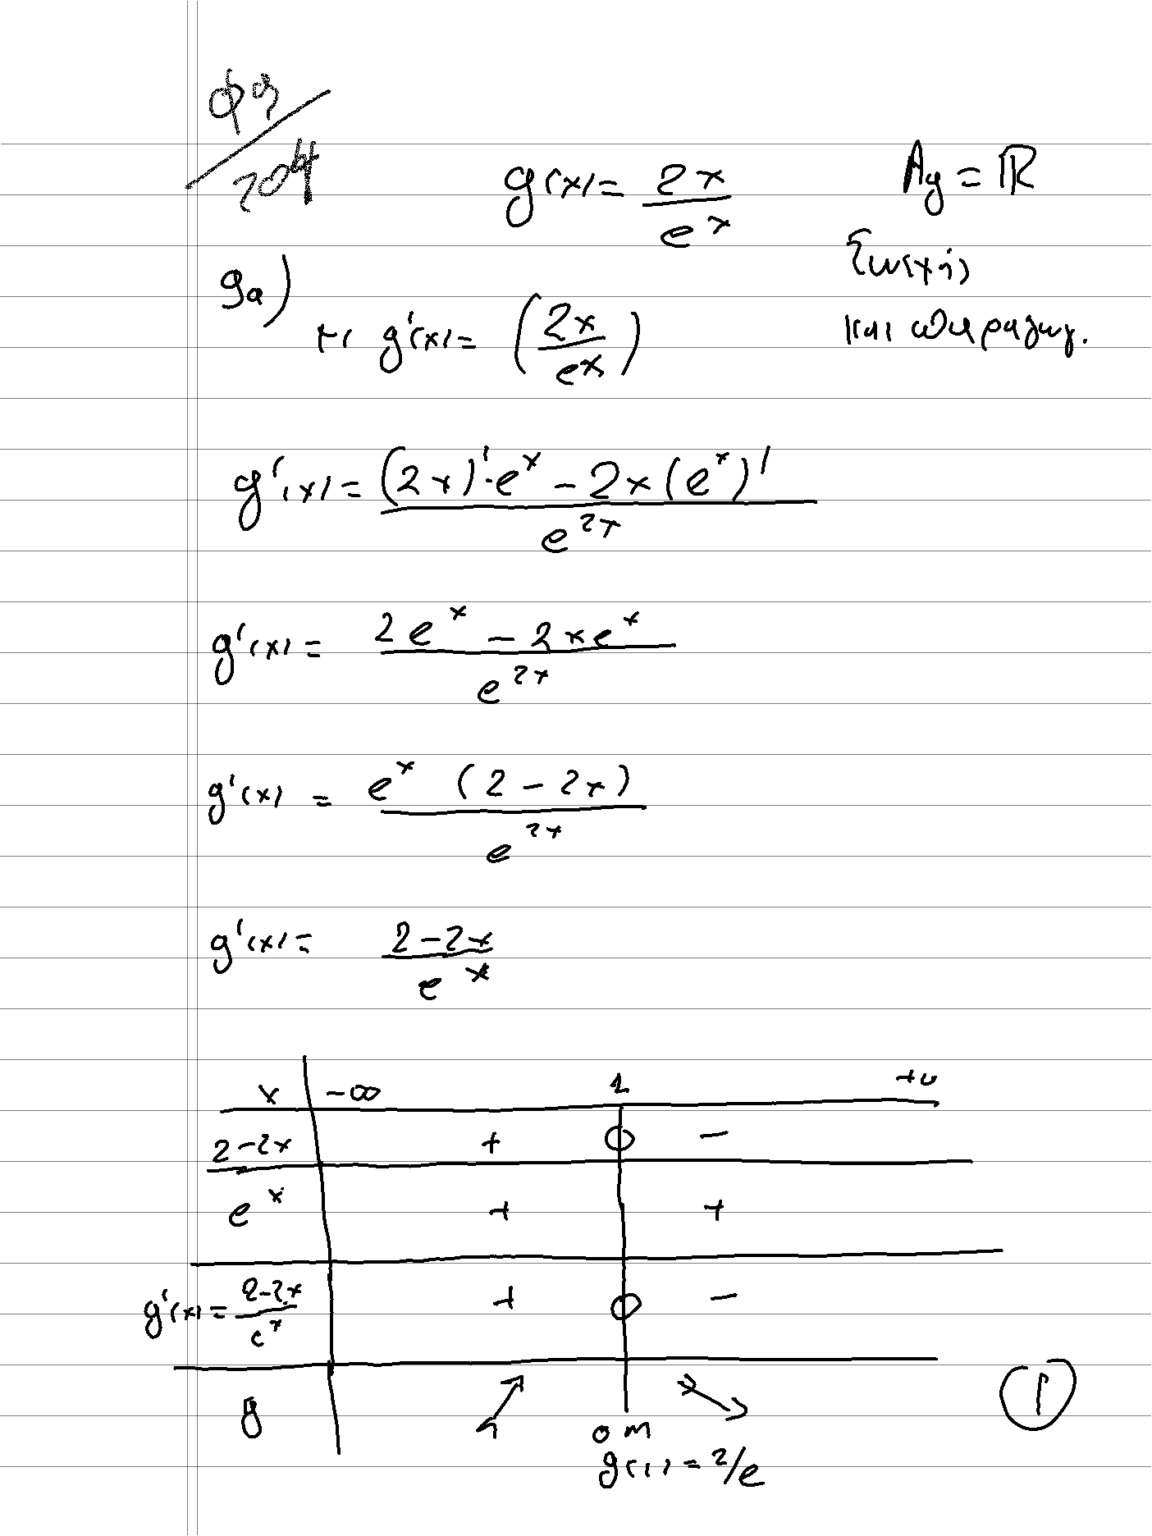 φ9/204
g(x) = 2x/e^x   A_g = ℝ
Συνεχής
9a)
και παραγωγ.
με g'(x) = (2x/e^x)
g'(x) = ((2x)'·e^x - 2x(e^x)')/e^2x
g'(x) = (2e^x - 2xe^x)/e^2x
g'(x) = e^x (2 - 2x)/e^2x
g'(x) = (2-2x)/e^x
x -∞ 1 +∞
2-2x + 0 -
e^x + +
g'(x) = (2-2x)/e^x + 0 -
g ↗ ↘
ο.μ
g(1) = 2/e
①